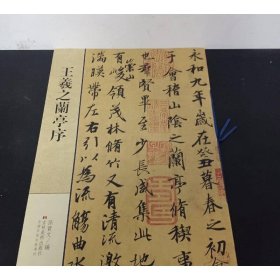 永和九年歲在癸丑暮春之初
于會稽山陰之蘭亭脩稧事
也群賢畢至少長咸集此地
有崇山峻領茂林脩竹又有清流激
湍暎帶左右引以為流觴曲水
王羲之蘭亭序
孫寶文 編